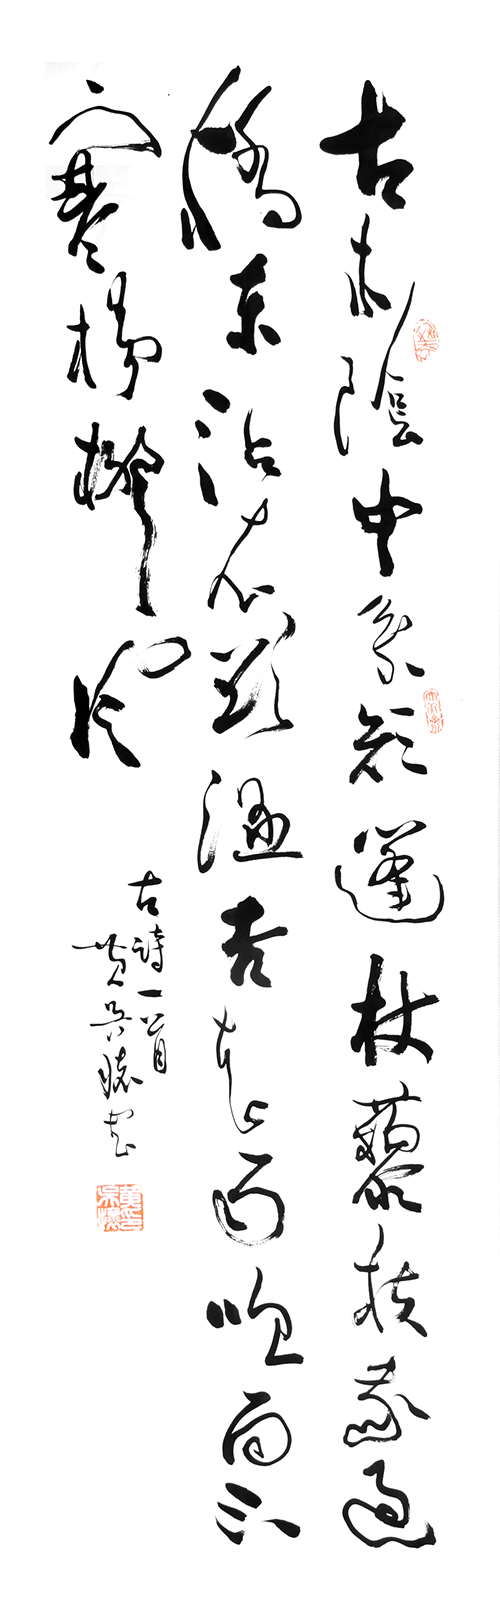 古木陰中系短篷杖藜扶我過
橋東沾衣欲濕杏花雨吹面不
寒楊柳風
古詩一首
黄吳懷书